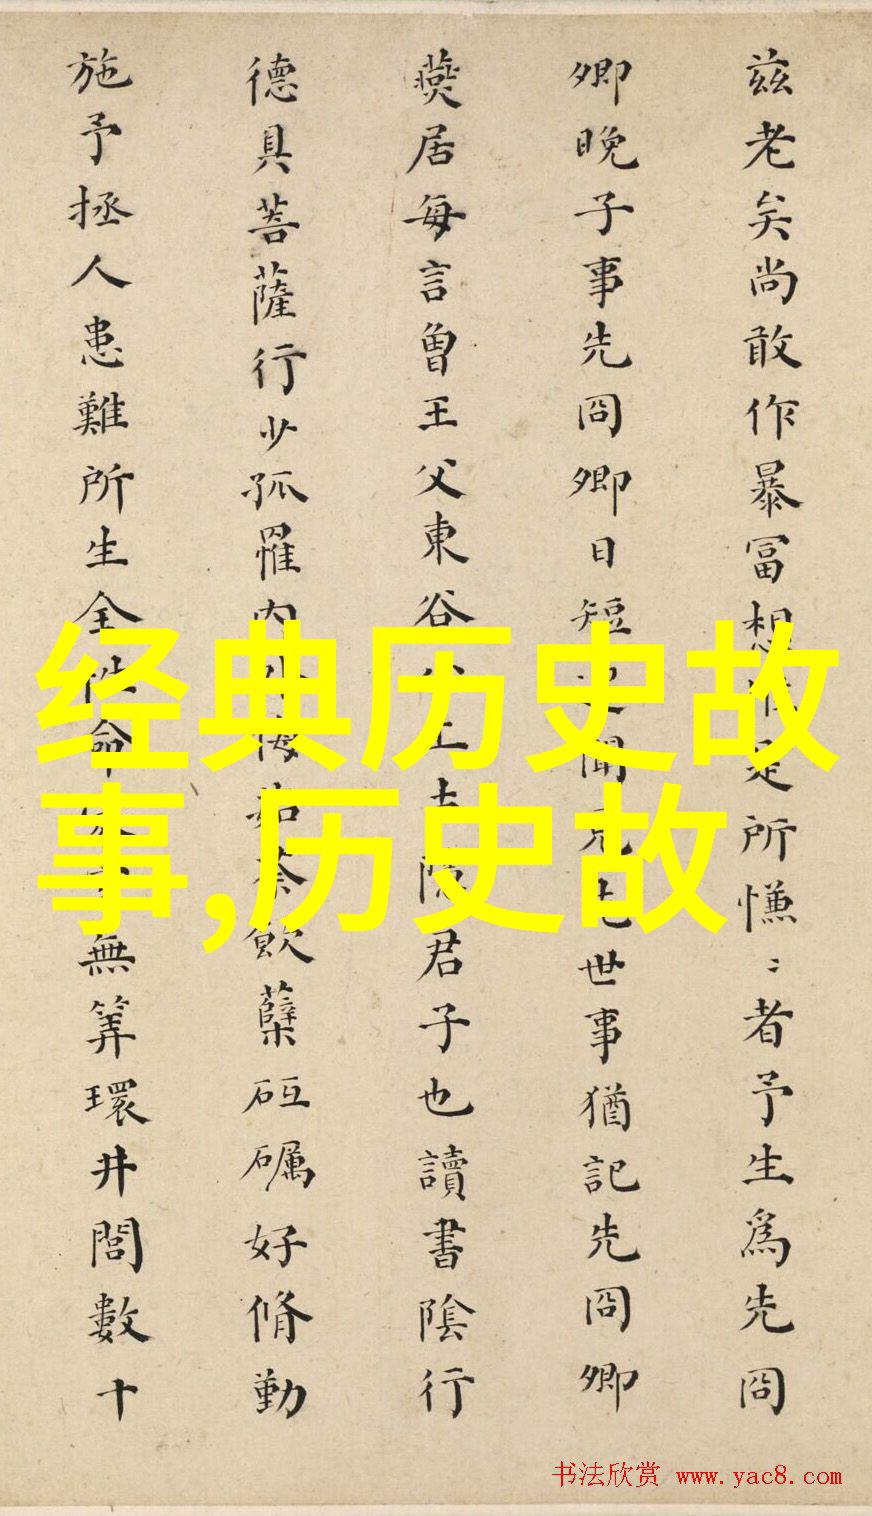 兹老矣尚敢作暴冨想惟是所慊〻者予生爲先冏
卿晚子事先冏卿日短聞先世事猶記先冏卿
燕居每言曾王父東谷公隱君子也讀書隂行
德具菩薩行少孤罹内外侮如荼飲蘖砥礪好脩勤
施予拯人患難所生全性命無筭環井閭數十
经典历史故
事,历史故
书法欣赏 www.yac8.com